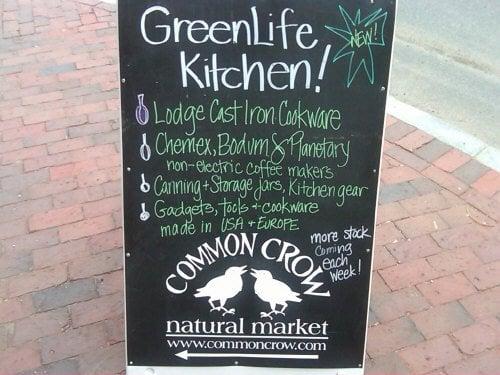 GreenLife
NEW!
Kitchen!
Lodge Cast Iron Cookware
Chemex, Bodum & Planetary
non-electric coffee makers
Canning + Storage jars, Kitchen gear
Gadgets, tools + cookware
made in USA + EUROPE
more stock
coming
each
week!
COMMON CROW
natural market
www.commoncrow.com